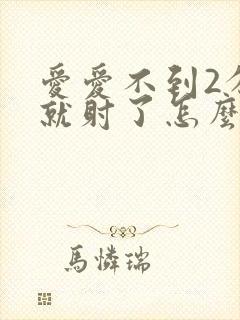 愛愛不到2分
就射了怎麼
馬憐瑞